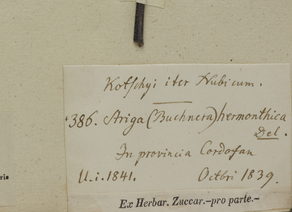 Kotschyi iter Nubicum.
386. Striga (Buchnera) hermonthica
Del.
In provincia Cordofan
U. i. 1841. Octbri 1839.
Ex Herbar. Zuccar.-pro parte-